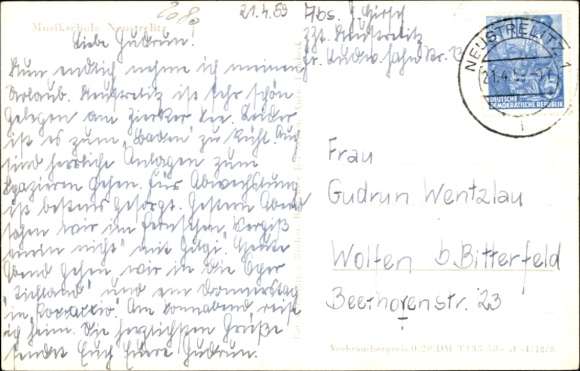 20 80
21.4.59
Abs. G. Girsch
zzt. Neustrelitz
Fr. Ludw. Jahn Str.
Musikschule Neustrelitz
Liebe Gudrun!
Nun endlich nehme ich meinen
Urlaub. Neustrelitz ist sehr schön
gelegen am Zierker See. Leider
ist es zum "Baden" zu kühl. Auch
sind herrliche Anlagen zum
Spazieren gehen. Für Abwechslung
ist bestens gesorgt. Gestern Abend
sahen wir im Fernsehen "Vergiß
mein nicht" mit Gigi. Heute
Abend gehen wir in die Oper
und am Donnerstag
in Am Sonnabend reise
ich heim. Die herzlichsten Grüße
sendet Euch Eure Gudrun.
NEUSTRELITZ 1
21.4.
DEUTSCHE
DEMOKRATISCHE REPUBLIK
5
Frau
Gudrun Wentzlau
Wolfen b. Bitterfeld
Beethovenstr. 23
Verbraucherpreis 0,20 DM